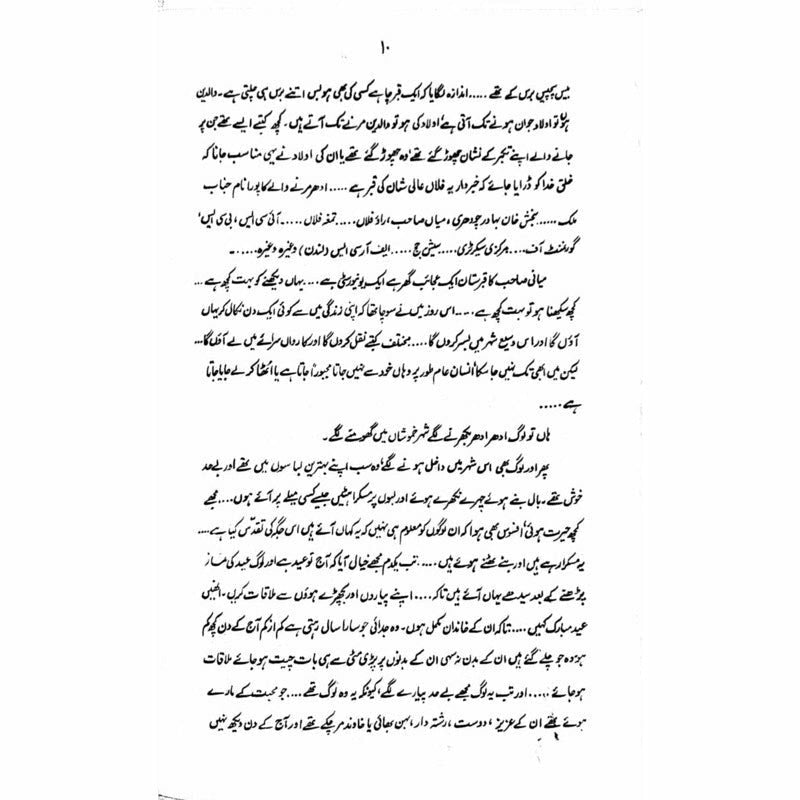 ۱۰
بیس پچیس برس کے تھے ..... اندازہ لگایا کہ ایک قبر چاہے کسی کی بھی ہو بس اتنے برس ہی چلتی ہے۔ والدین
ہوں تو اولاد جوان ہونے تک آتی ہے اولاد کی ہو تو والدین مرنے تک آتے ہیں۔ کچھ کتبے ایسے تھے جن پر
جانے والے اپنے تبحر کے نشان چھوڑ گئے تھے وہ چھوڑ گئے تھے یا ان کی اولاد نے یہی مناسب جانا کہ
خلق خدا کو ڈرایا جائے کہ خبردار یہ فلاں عالی شان کی قبر ہے ..... ادھر مرنے والے کا پورا نام جناب
ملک ...... بخش خان بہادر چودھری، میاں صاحب، راؤ فلاں ..... تمغہ فلاں ..... آئی سی ایس، پی سی ایس'
گورنمنٹ آف .... مرکزی سیکرٹری ..... سیشن جج ..... ایف آر سی ایس (لندن) وغیرہ وغیرہ .....۔
میانی صاحب کا قبرستان ایک عجائب گھر ہے ایک یونیورسٹی ہے .... یہاں دیکھنے کو بہت کچھ ہے ...
کچھ سیکھنا ہو تو بہت کچھ ہے ..... اس روز میں نے سوچا تھا کہ اپنی زندگی میں سے کوئی ایک دن نکال کر یہاں
آؤں گا اور اس وسیع شہر میں بسر کروں گا .... مختلف کتبے نقل کروں گا اور کارواں سرائے میں لے آؤں گا ...
لیکن میں ابھی تک نہیں جا سکا انسان عام طور پر وہاں خود سے نہیں جاتا مجبوراً جاتا ہے یا اٹھا کر لے جایا جاتا
ہے .....
ہاں تو لوگ ادھر ادھر بکھرنے لگے شہر خموشاں میں گھومنے لگے۔
پھر اور لوگ بھی اس شہر میں داخل ہونے لگے وہ سب اپنے بہترین لباسوں میں تھے اور بے حد
خوش تھے۔ بال بنے ہوئے چہرے نکھرے ہوئے اور لبوں پر مسکراہٹیں جیسے کسی میلے پر آئے ہوں .... مجھے
کچھ حیرت ہوئی' افسوس بھی ہوا کہ ان لوگوں کو معلوم ہی نہیں کہ یہ کہاں آئے ہیں اس جگہ کی تقدس کیا ہے ....
یہ مسکرا رہے ہیں اور بنے ٹھنے ہوئے ہیں ..... تب یکدم مجھے خیال آیا کہ آج تو عید ہے اور لوگ عید کی نماز
پڑھنے کے بعد سیدھے یہاں آئے ہیں تاکہ .... اپنے پیاروں اور بچھڑے ہوؤں سے ملاقات کریں۔ انہیں
عید مبارک کہیں ..... تاکہ ان کے خاندان مکمل ہوں۔ وہ جدائی جو سارا سال رہتی ہے کم از کم آج کے دن کچھ کم
ہو وہ جو چلے گئے ہیں ان کے بدن نہ سہی ان کے بدنوں پر پڑی مٹی سے ہی بات چیت ہو جائے ملاقات
ہو جائے ..... اور تب یہ لوگ مجھے بے حد پیارے لگے، کیونکہ یہ وہ لوگ تھے .... جو محبت کے مارے
ہوئے تھے ان کے عزیز، دوست، رشتہ دار، بہن بھائی یا خاوند مر چکے تھے اور آج کے دن دیکھ نہیں